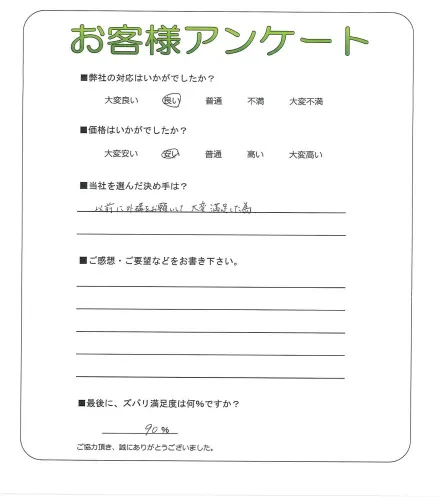 お客様アンケート
■弊社の対応はいかがでしたか？
大変良い 良い 普通 不満 大変不満
■価格はいかがでしたか？
大変安い 安い 普通 高い 大変高い
■当社を選んだ決め手は？
以前に外構をお願いして大変満足した為
■ご感想・ご要望などをお書き下さい。
■最後に、ズバリ満足度は何%ですか？
90 %
ご協力頂き、誠にありがとうございました。